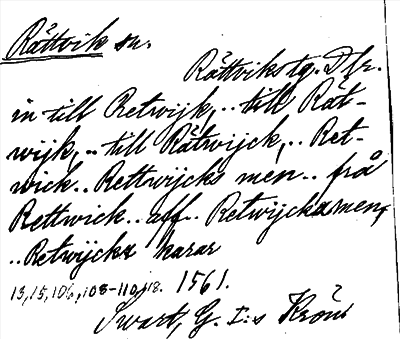 Rättvik sn.
Rättviks tg. Dlr.
in till Retwijk, .. till Rät-
wijk, .. till Rätwijck, .. Ret-
wick .. Rettwijcks men .. frå
Rettwick .. aff .. Retwijcka men,
.. Retwijcka karar
13, 15, 106, 108-110, 118. 1561.
Swart, G. I:s Krön.